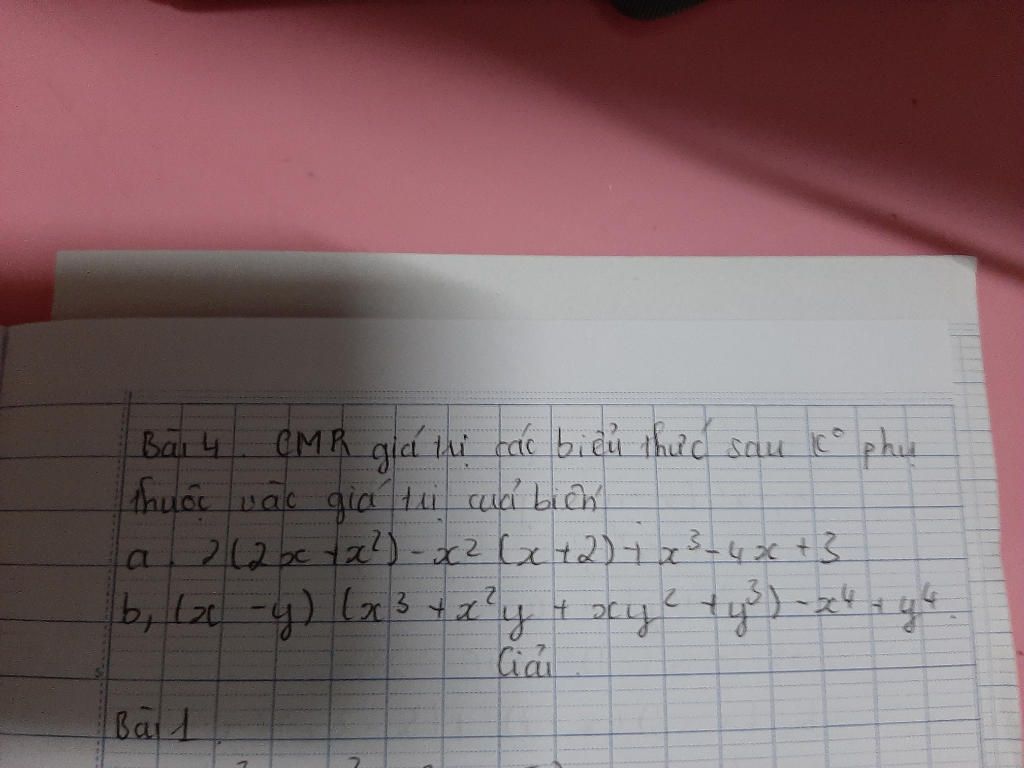 Bài 4. CMR giá trị các biểu thức sau k° phụ
thuộc vào giá trị của biến
a. 2(2x+x²) - x² (x+2) + x³ - 4x + 3
b, (x - y) (x³ + x²y + xy² + y³) - x⁴ + y⁴.
Giải.
Bài 1.